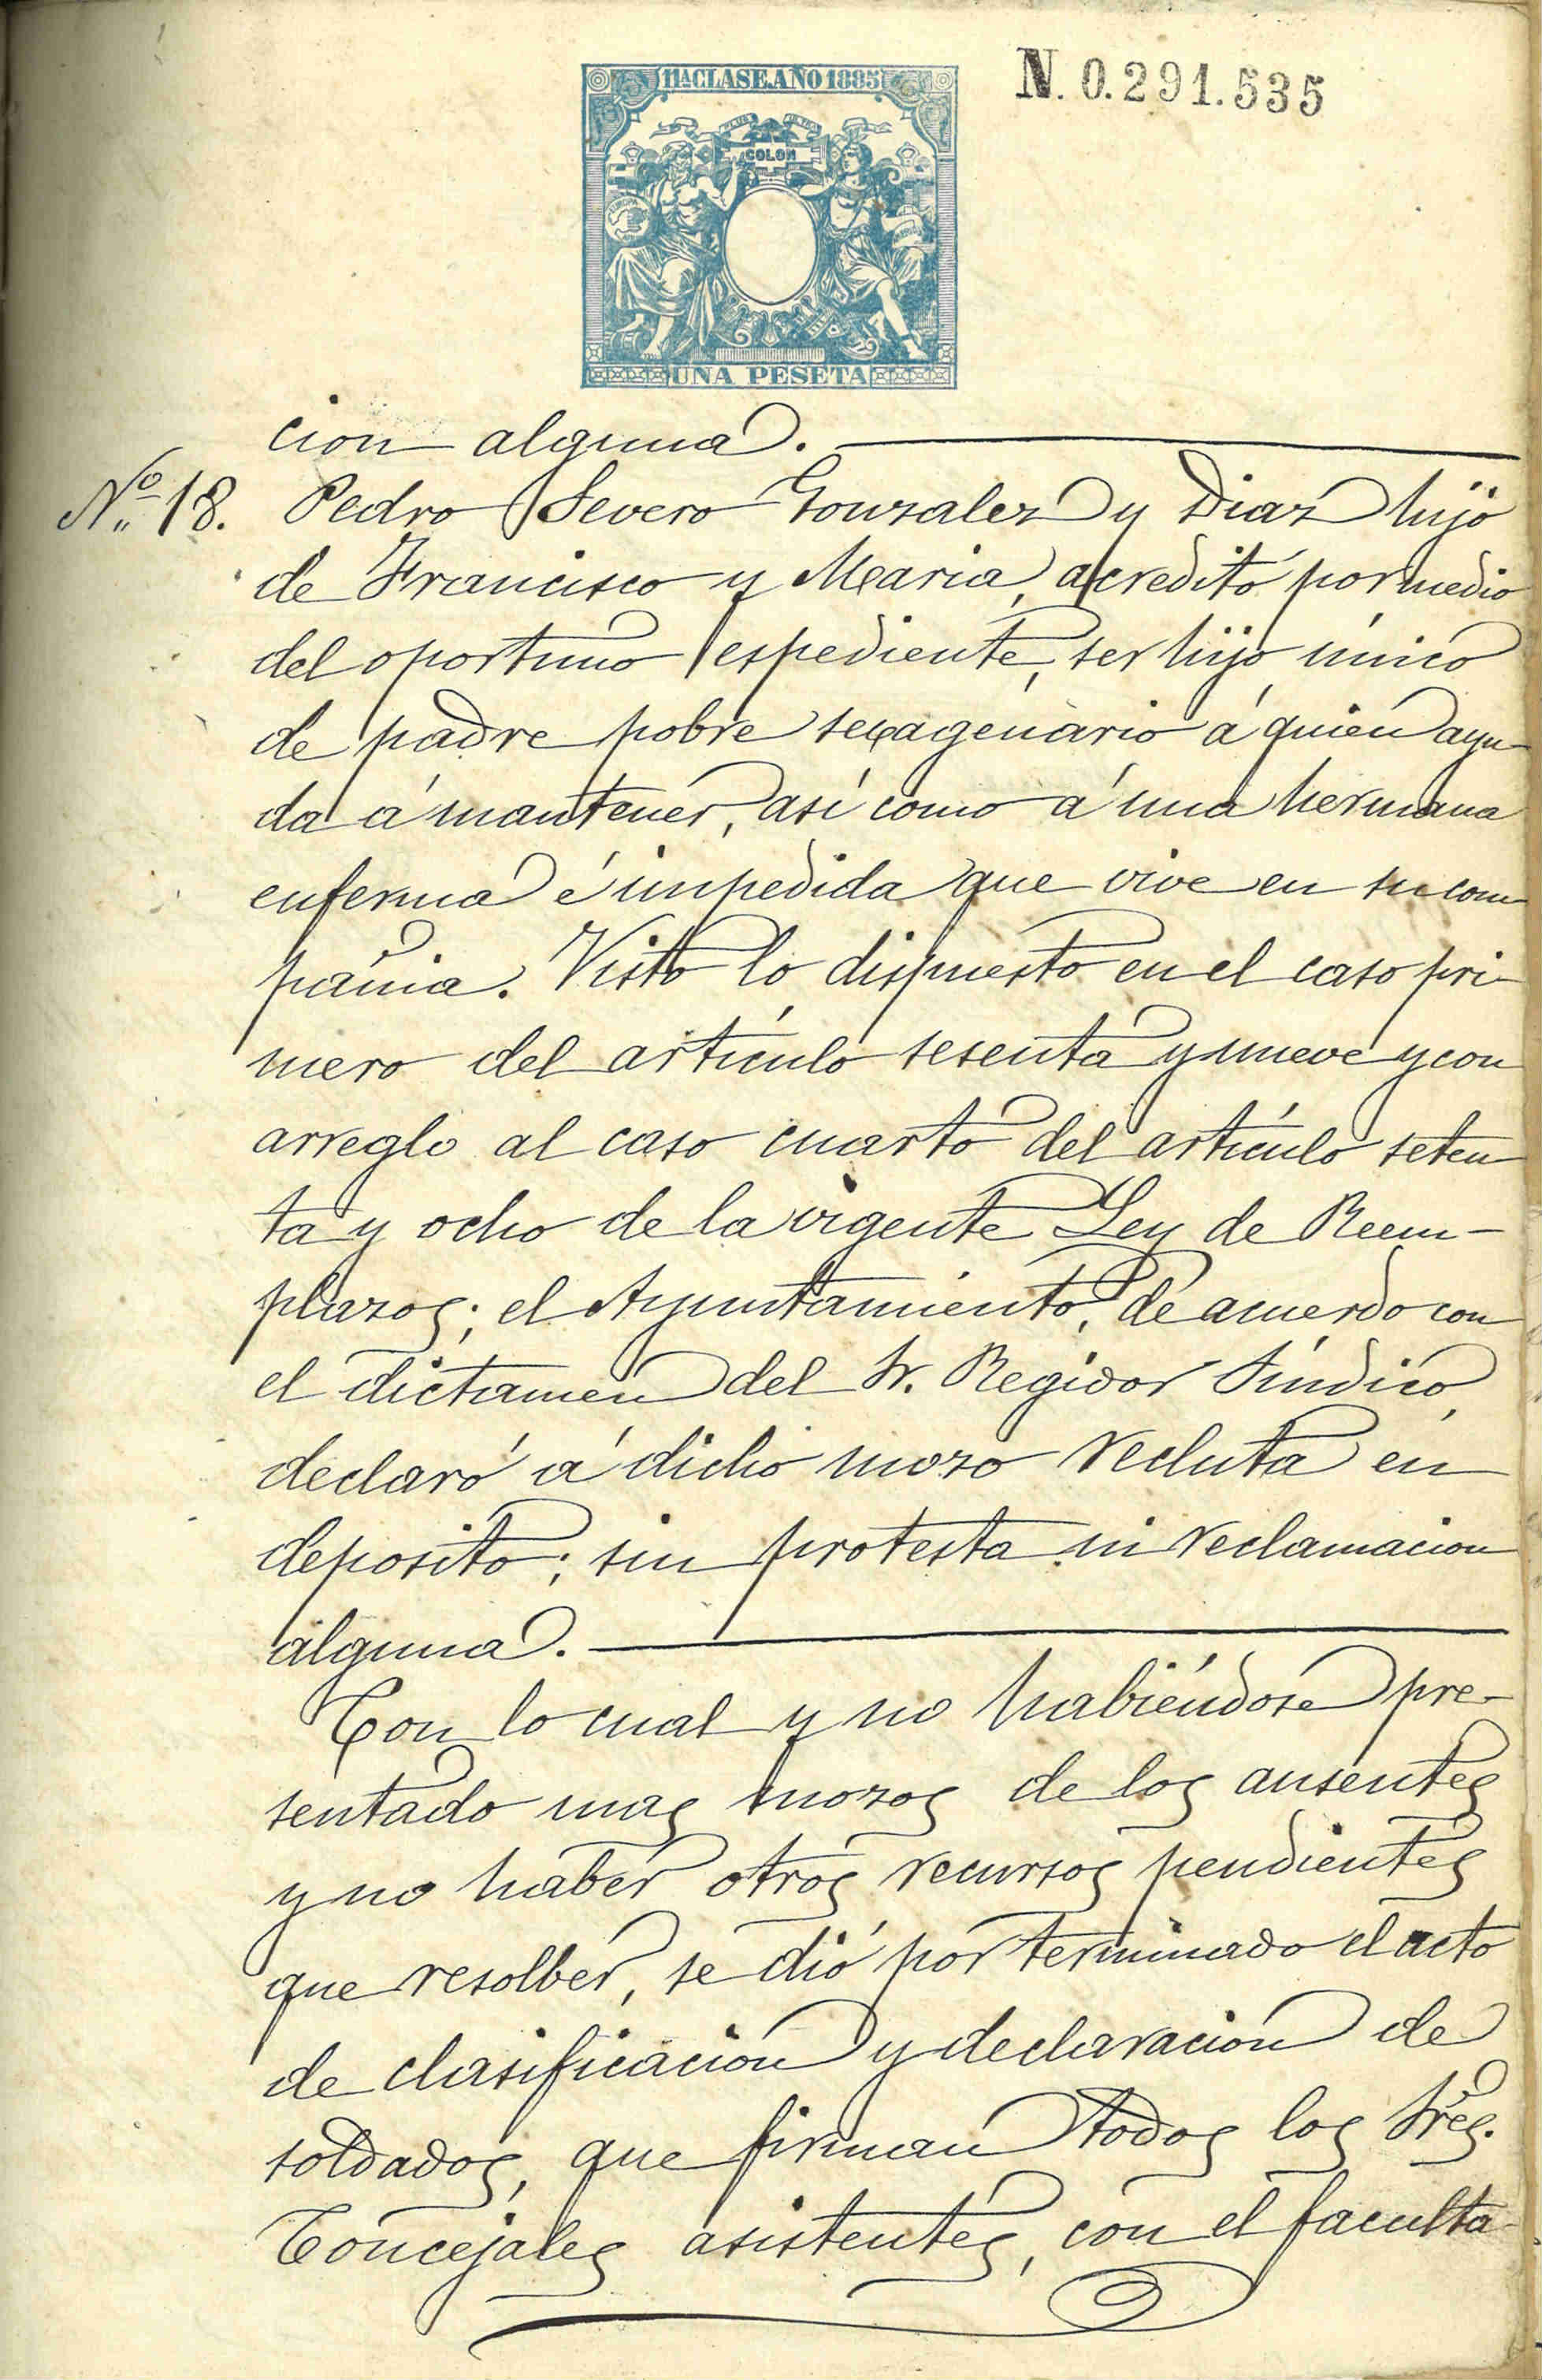 11ª CLASE. AÑO 1885
N. 0.291.535
COLON
UNA PESETA
cion alguna.
Nº 18. Pedro Severo Gonzalez y Diaz hijo
de Francisco y Maria, acreditó por medio
del oportuno espediente, ser hijo único
de padre pobre sexagenario á quien ayu-
da á mantener, así como á una hermana
enferma é impedida que vive en su com-
pañia. Visto lo dispuesto en el caso pri-
mero del artículo sesenta y nueve y con
arreglo al caso cuarto del artículo seten-
ta y ocho de la vigente Ley de Reem-
plazos; el Ayuntamiento, de acuerdo con
el dictamen del Sr. Regidor Síndico,
declaró á dicho mozo recluta en
deposito; sin protesta ni reclamacion
alguna.
Con lo cual y no habiéndose pre-
sentado mas mozos de los ausentes
y no haber otros recursos pendientes
que resolber, se dió por terminado el acto
de clasificacion y declaracion de
soldados, que firman todos los Sres.
Concejales asistentes, con el faculta-